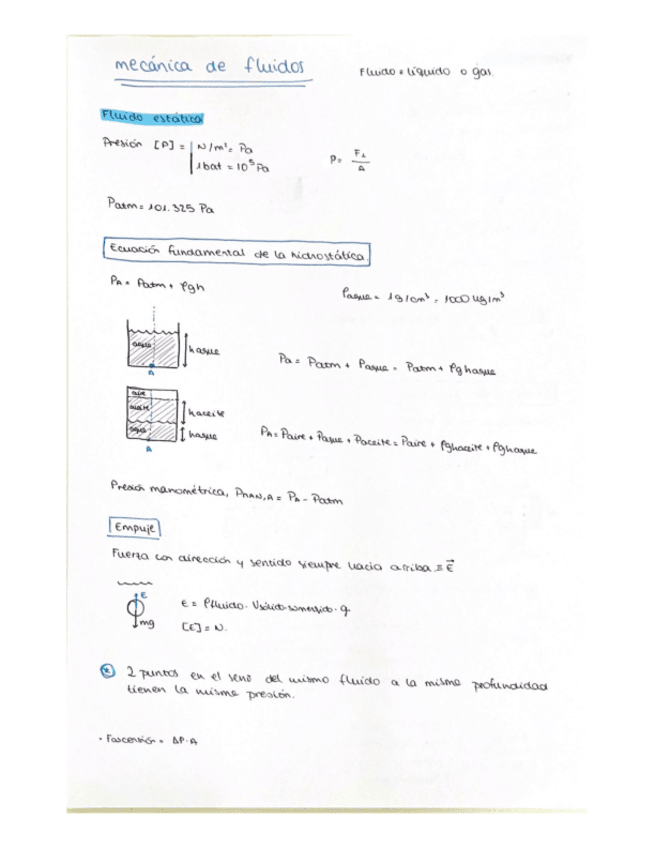 mecánica de fluidos
Fluido = líquido o gas.
Fluido estática
Presión [P] = N/m² = Pa
1 bat = 10⁵ Pa
P = F⊥ / A
Patm = 101.325 Pa
Ecuación fundamental de la hidrostática.
PA = Patm + ρgh
ρagua = 1g/cm³ = 1000 kg/m³
agua
hagua
A
Pa = Patm + Pagua = Patm + ρghagua
aire
aceite
haceite
agua
hagua
A
PA = Paire + Pagua + Paceite = Paire + ρghaceite + ρghagua
Presión manométrica, PMAN,A = PA - Patm
Empuje
Fuerza con dirección y sentido siempre hacia arriba ≡ E⃗
E
mg
E = ρfluido · Vsólido sumergido · g
[E] = N.
2 puntos en el seno del mismo fluido a la misma profundidad
tienen la misma presión.
· Fascensión = ΔP·A